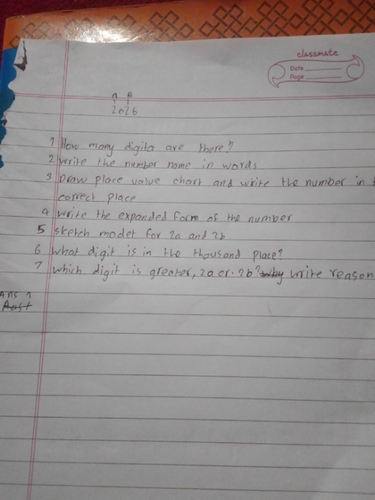 classmate
Date
Page
A B
2026
1 How many digits are there?
2 Write the number name in words
3 Draw place value chart and write the number in
correct place
4 Write the expanded form of the number
5 sketch model for 2a and 2b
6 What digit is in the thousand place?
7 Which digit is greater, 2a or 2b? why Write reason
Ans 1
Ans 1